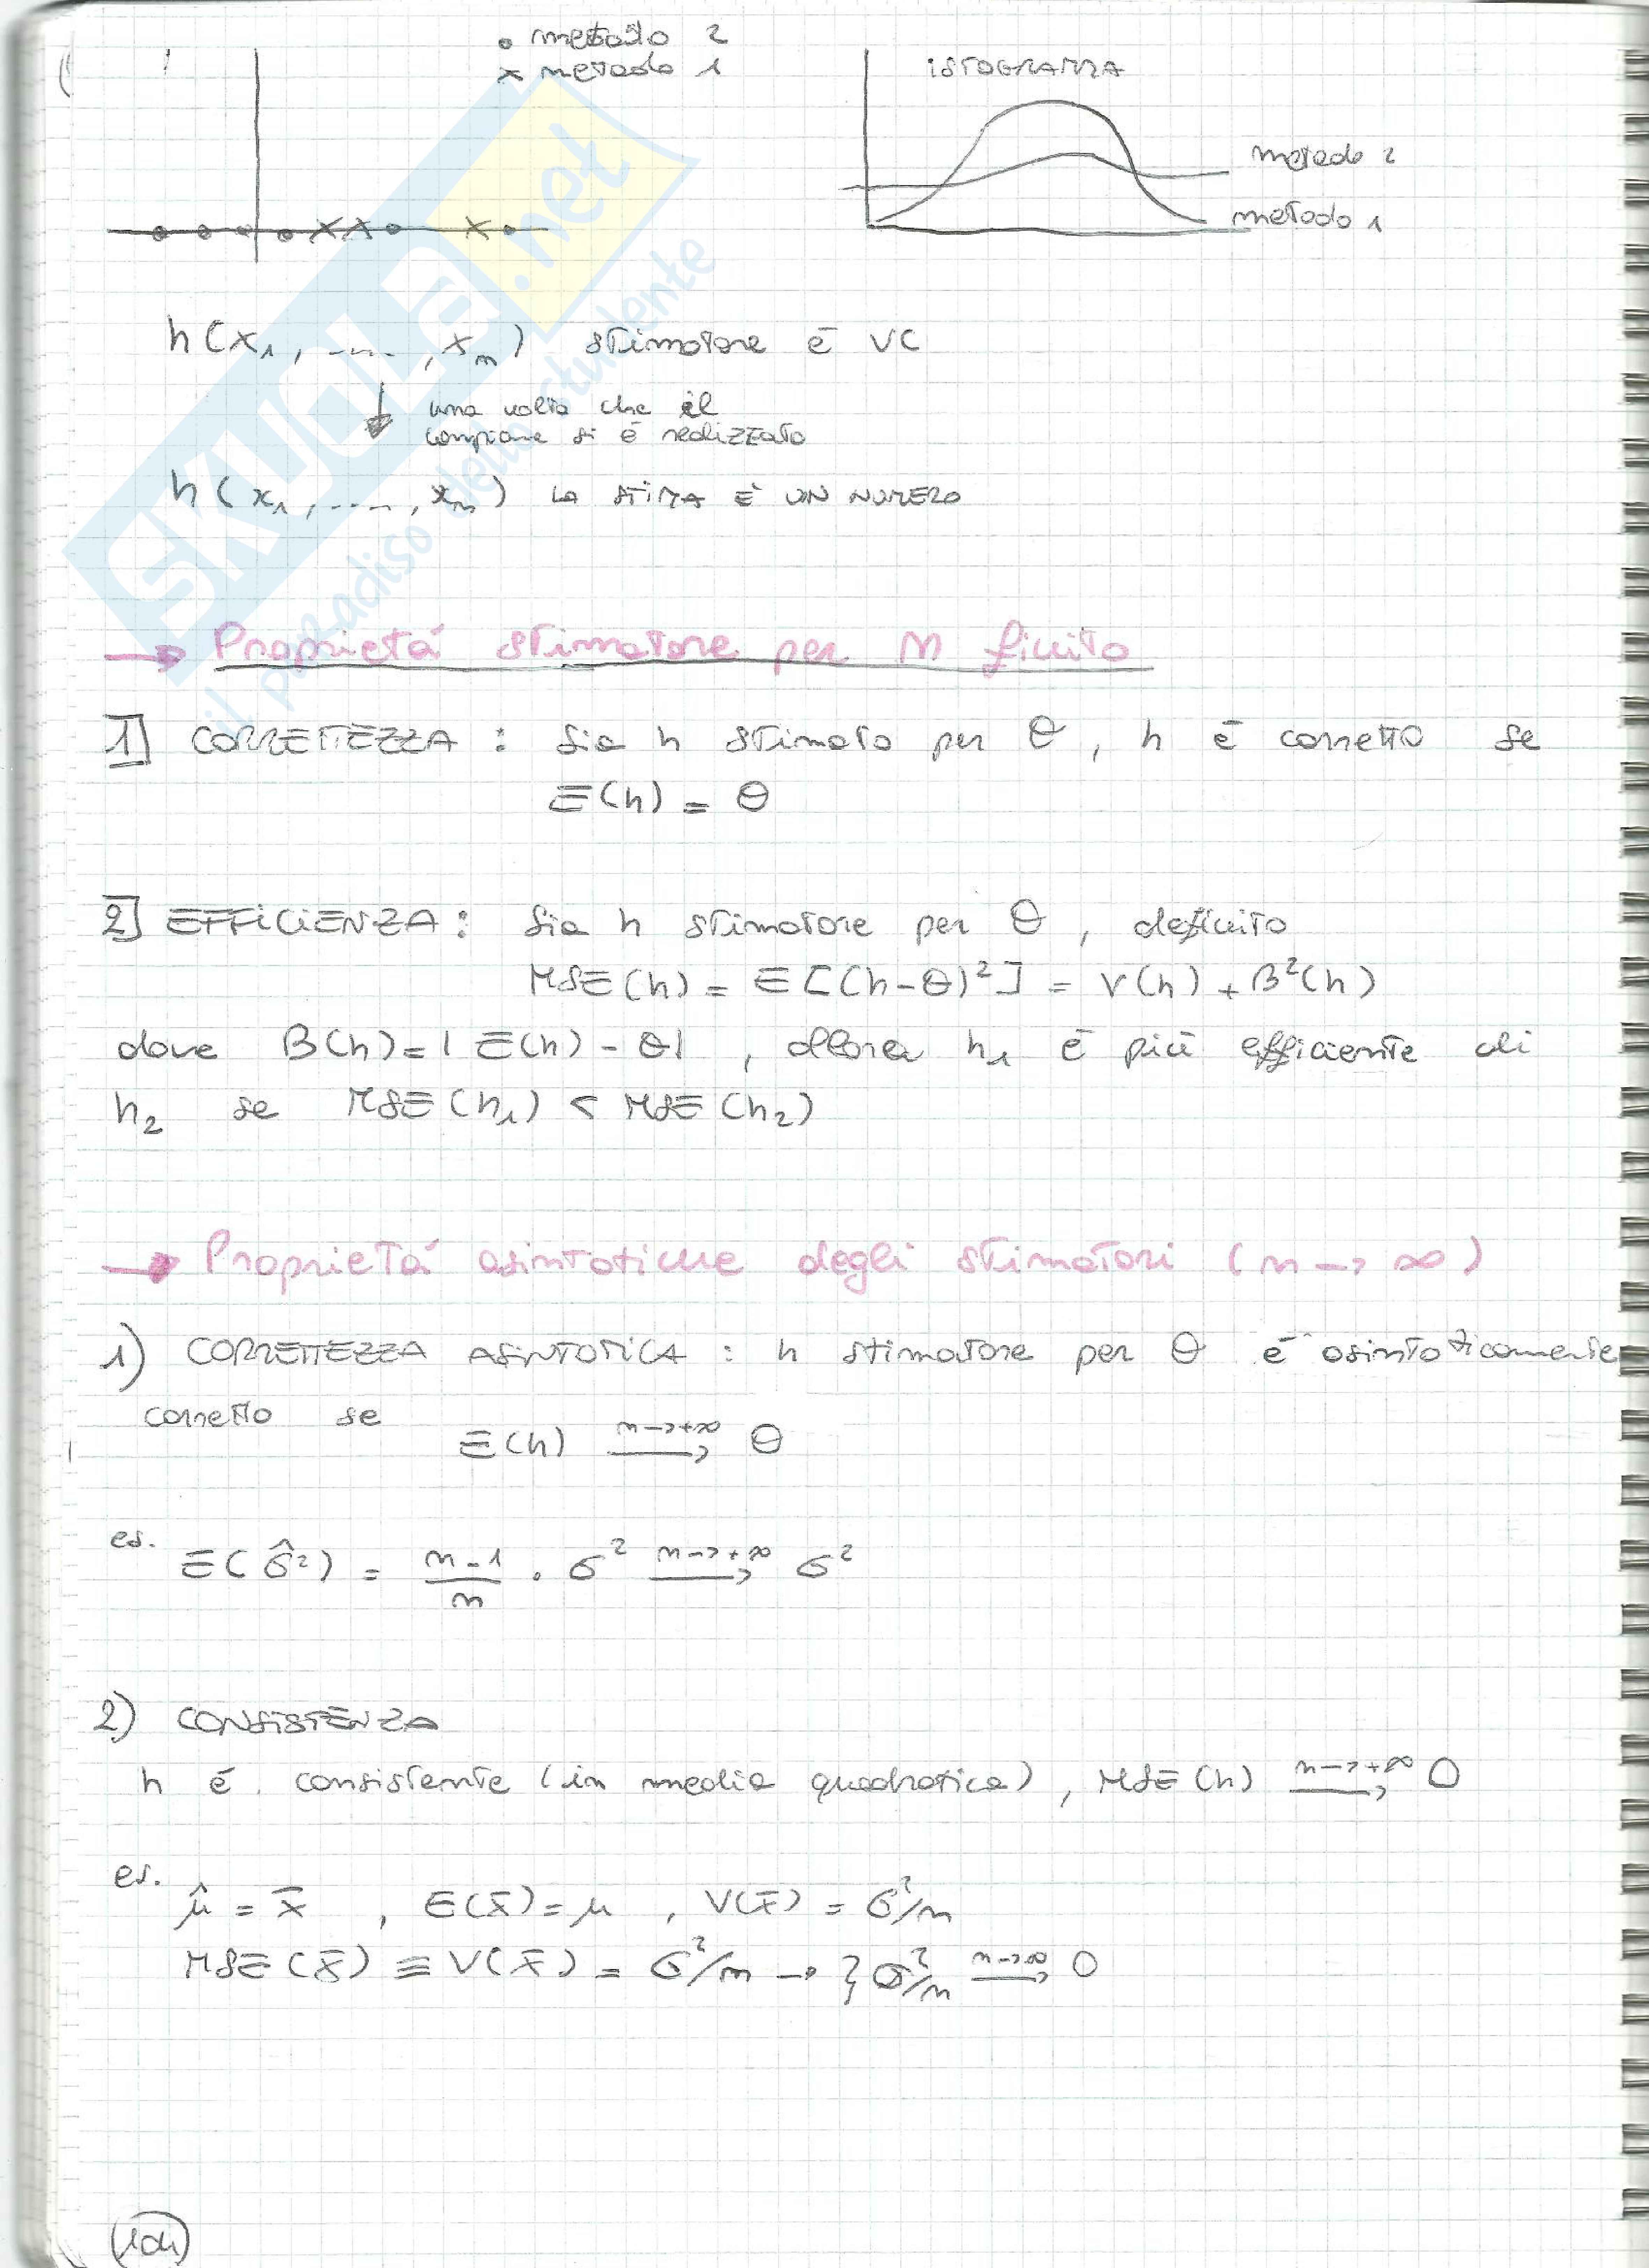 • metodo 2
x metodo 1
ISTOGRAMMA
metodo 2
metodo 1
h(x₁, ...., xₙ) stimatore è VC
una volta che il
campione si è realizzato
h(x₁, ...., xₙ) LA STIMA È UN NUMERO
→ Proprietá stimatore per n finito
1] CORRETTEZZA : Sia h stimato per θ, h è corretto se
E(h) = θ
2] EFFICIENZA : Sia h stimatore per θ, definito
MSE(h) = E[(h-θ)²] = V(h) + B²(h)
dove B(h) = |E(h) - θ| , allora h₁ è più efficiente di
h₂ se MSE(h₁) < MSE(h₂)
→ Proprietá asintotiche degli stimatori (n → ∞)
1) CORRETTEZZA ASINTOTICA : h stimatore per θ è asintoticamente
corretto se
E(h) n→+∞ → θ
es.
E(σ̂²) = n-1/n · σ² n→+∞ → σ²
2) CONSISTENZA
h è consistente (in media quadratica), MSE(h) n→+∞ → 0
es.
μ̂ = x̄ , E(x̄) = μ , V(x̄) = σ²/n
MSE(x̄) ≡ V(x̄) = σ²/n → } σ²/n n→∞ → 0
SKUOLA.net
il paradiso dello studente